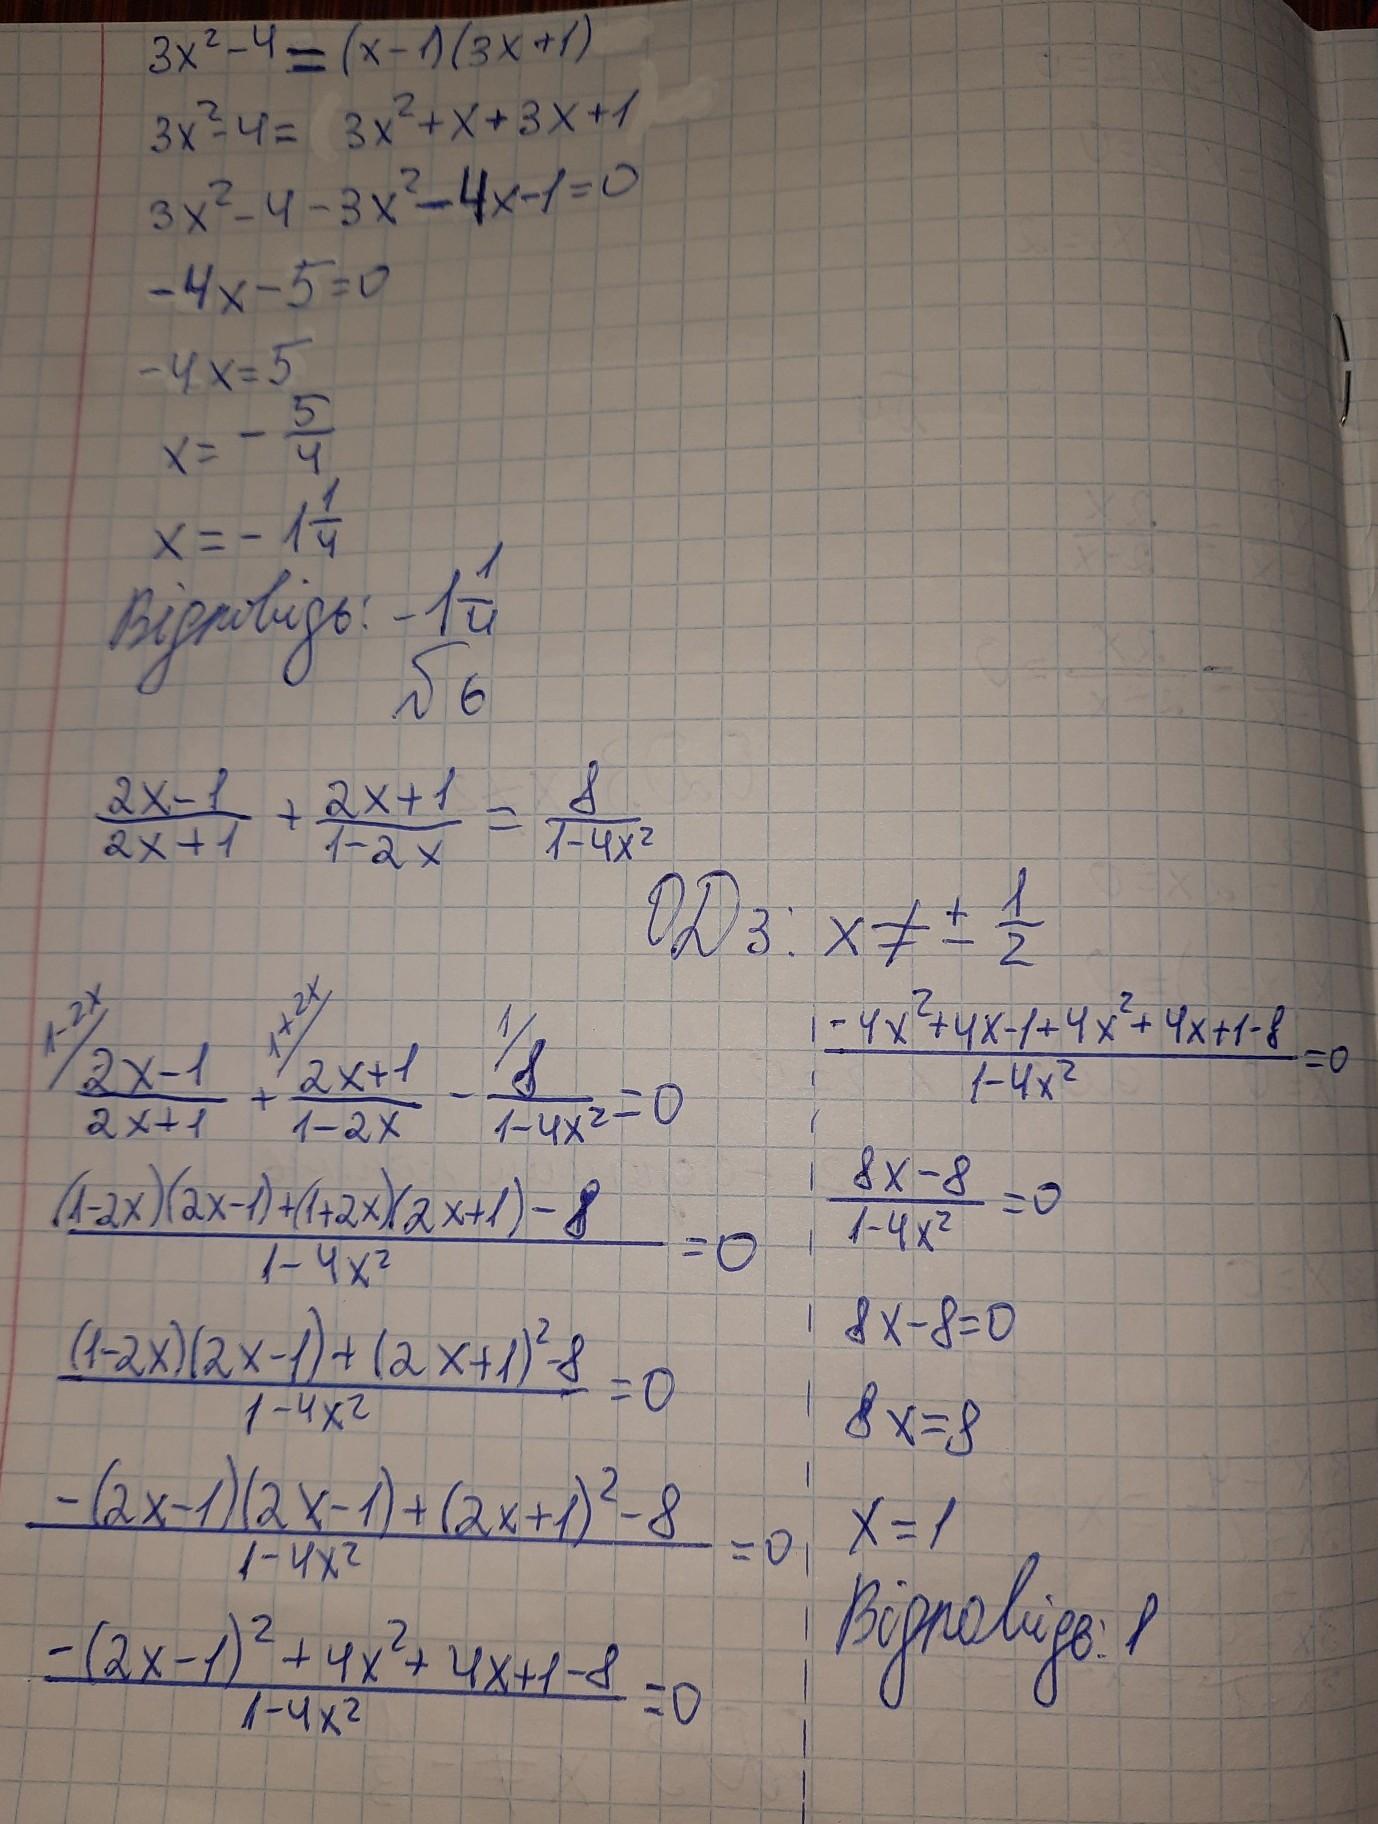 3x²-4=(x-1)(3x+1)
3x²-4= 3x²+x+3x+1
3x²-4-3x²-4x-1=0
-4x-5=0
-4x=5
x=-5/4
x=-1 1/4
Відповідь: -1 1/4
№6
(2x-1)/(2x+1) + (2x+1)/(1-2x) = 8/(1-4x²)
ОДЗ: x≠±1/2
1-2x/ (2x-1)/(2x+1) + 1+2x/ (2x+1)/(1-2x) - 1/ 8/(1-4x²) =0
((1-2x)(2x-1)+(1+2x)(2x+1)-8)/(1-4x²) =0
((1-2x)(2x-1)+(2x+1)²-8)/(1-4x²) =0
(-(2x-1)(2x-1)+(2x+1)²-8)/(1-4x²) =0
(-(2x-1)²+4x²+4x+1-8)/(1-4x²) =0
(-4x²+4x-1+4x²+4x+1-8)/(1-4x²) =0
(8x-8)/(1-4x²) =0
8x-8=0
8x=8
x=1
Відповідь: 1